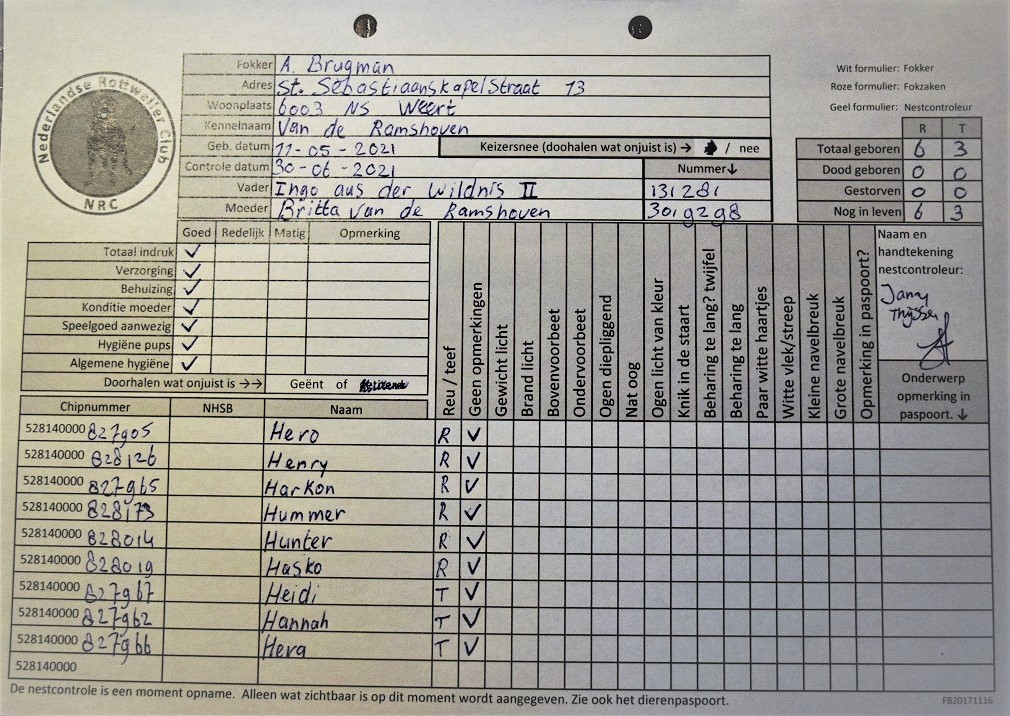 Nederlandse Rottweiler Club
NRC
Fokker A. Brugman
Adres St. Sebastiaanskapel Straat 13
Woonplaats 6003 NS Weert
Kennelnaam Van de Ramshoven
Geb. datum 11-05-2021 Keizersnee (doorhalen wat onjuist is) → / nee
Controle datum 30-06-2021 Nummer↓
Vader Ingo aus der Wildnis II 131281
Moeder Britta van de Ramshoven 3019298
Wit formulier: Fokker
Roze formulier: Fokzaken
Geel formulier: Nestcontroleur
R T
Totaal geboren 6 3
Dood geboren 0 0
Gestorven 0 0
Nog in leven 6 3
Goed Redelijk Matig Opmerking
Totaal indruk ✓
Verzorging ✓
Behuizing ✓
Konditie moeder ✓
Speelgoed aanwezig ✓
Hygiëne pups ✓
Algemene hygiëne ✓
Doorhalen wat onjuist is →→ Geënt of
Reu / teef
Geen opmerkingen
Gewicht licht
Brand licht
Bovenvoorbeet
Ondervoorbeet
Ogen diepliggend
Nat oog
Ogen licht van kleur
Knik in de staart
Beharing te lang? twijfel
Beharing te lang
Paar witte haartjes
Witte vlek/streep
Kleine navelbreuk
Grote navelbreuk
Opmerking in paspoort?
Naam en
handtekening
nestcontroleur:
Jany
Thijssen
Onderwerp
opmerking in
paspoort. ↓
Chipnummer NHSB Naam
528140000 827905 Hero R ✓
528140000 828126 Henry R ✓
528140000 827965 Harkon R ✓
528140000 828173 Hummer R ✓
528140000 828014 Hunter R ✓
528140000 828019 Hasko R ✓
528140000 827967 Heidi T ✓
528140000 827962 Hannah T ✓
528140000 827966 Hera T ✓
528140000
De nestcontrole is een moment opname. Alleen wat zichtbaar is op dit moment wordt aangegeven. Zie ook het dierenpaspoort.
FB20171116